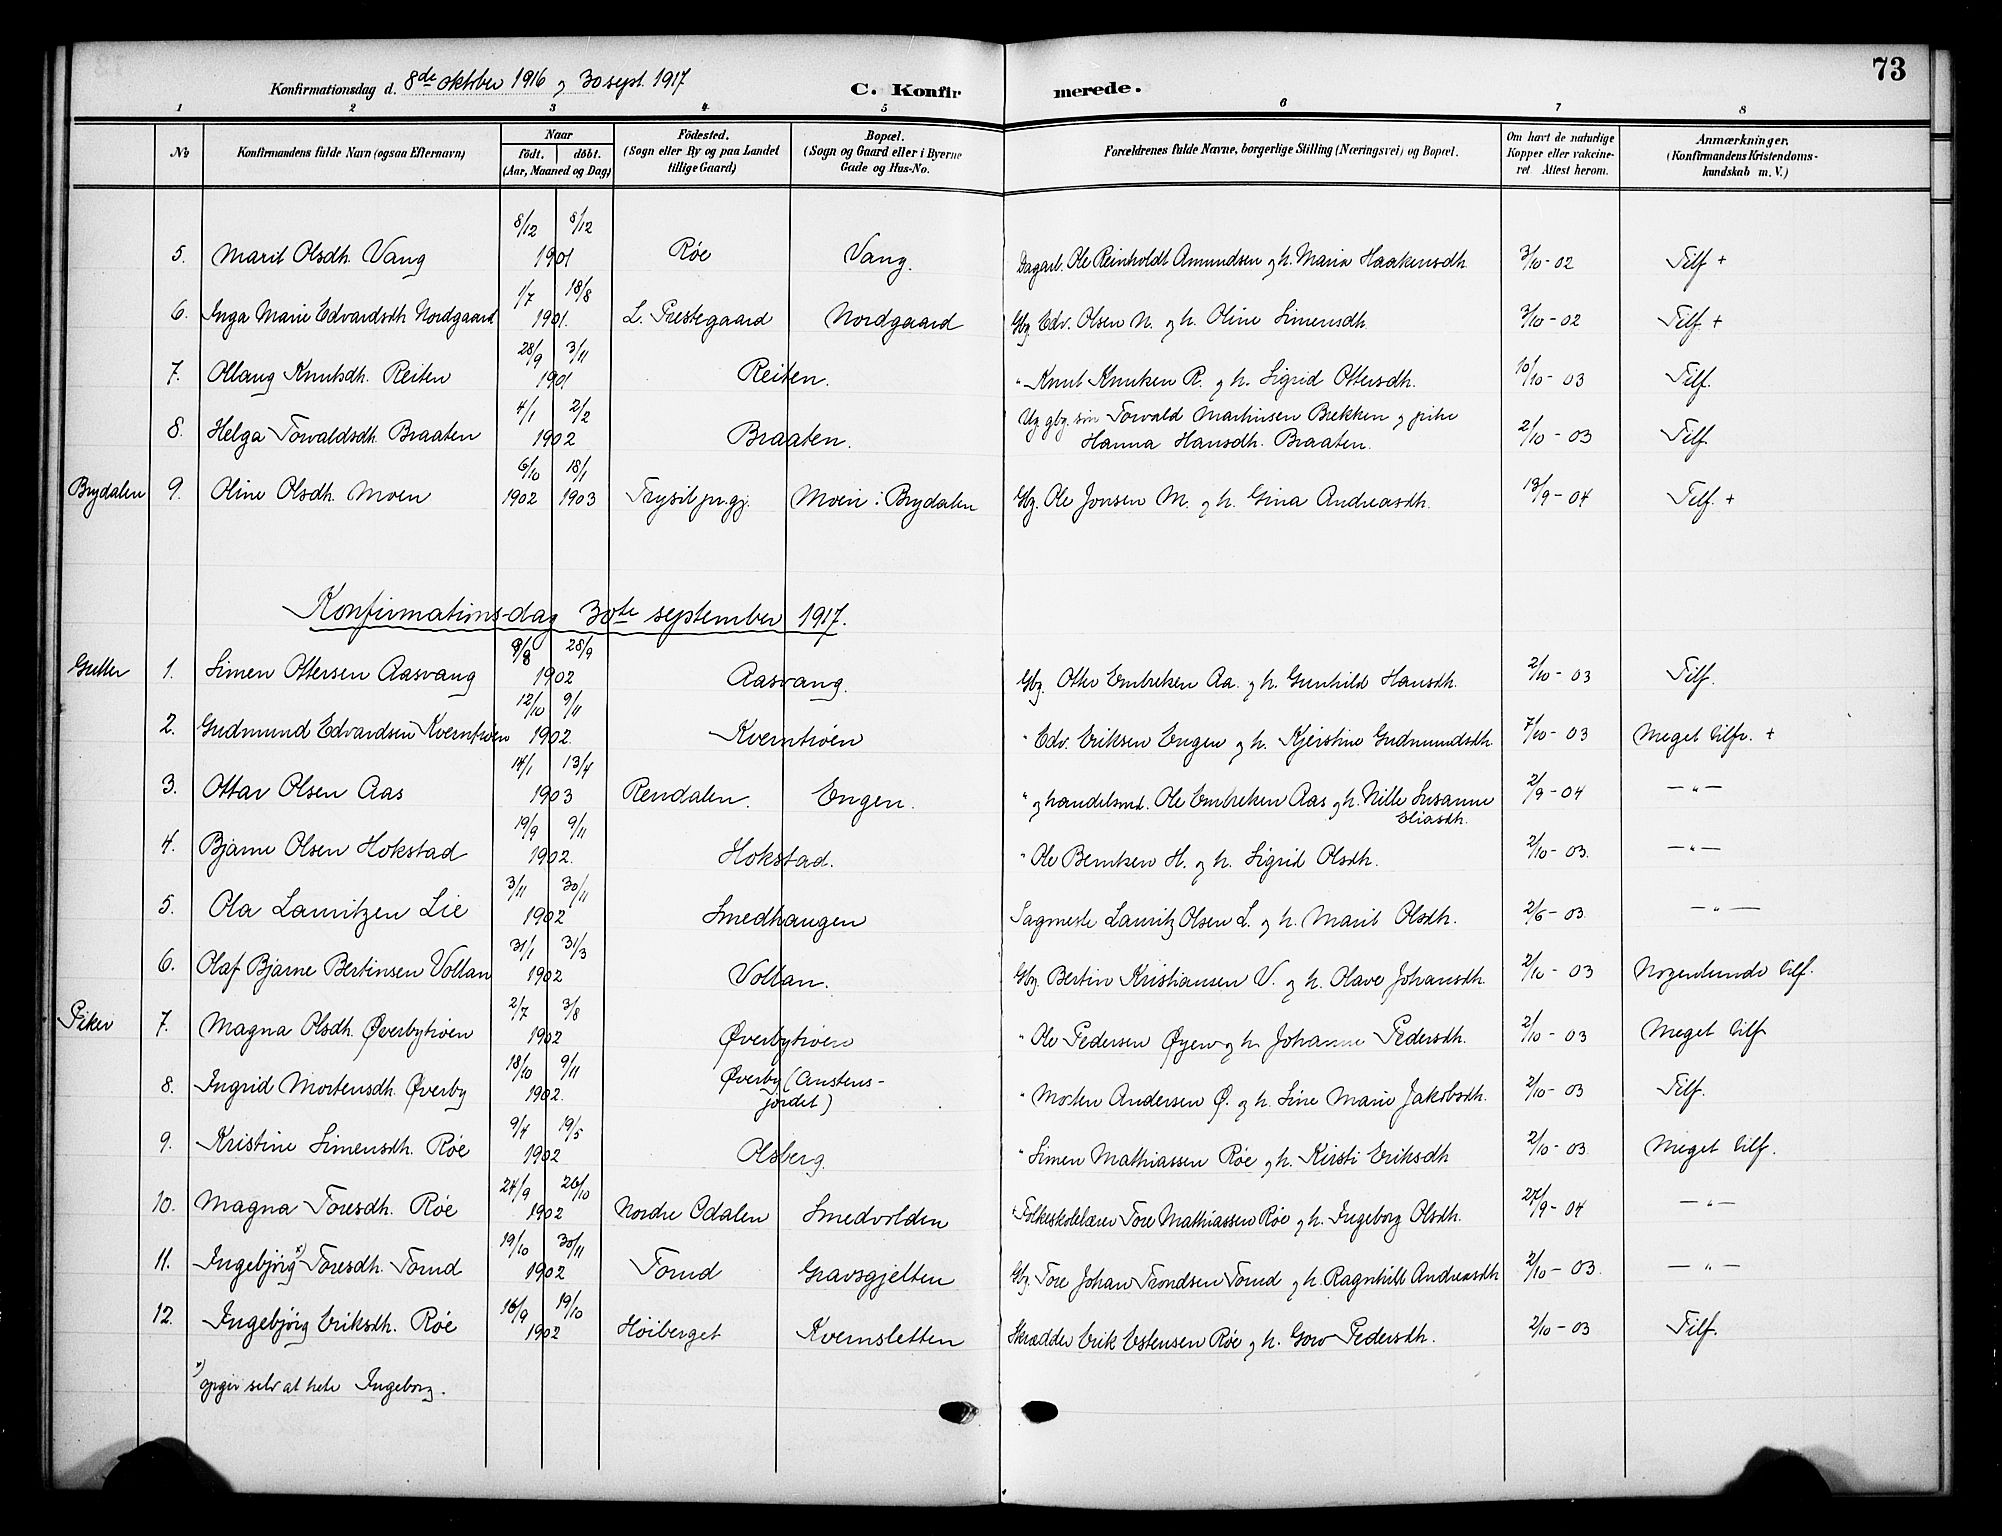 73
Konfirmationsdag d. 8de oktober 1916 og 30 sept. 1917
C. Konfirmerede.
1 2 3 4 5 6 7 8
No
Konfirmandens fulde Navn (ogsaa Efternavn)
Naar
födt. döbt.
(Aar, Maaned og Dag)
Födested.
(Sogn eller By og paa Landet
tillige Gaard)
Bopæl.
(Sogn og Gaard eller i Byerne
Gade og Hus-No.
Forældrenes fulde Navne, borgerlige Stilling (Næringsvei) og Bopæl.
Om havt de naturlige
Kopper eller vakcine-
ret Attest herom.
Anmærkninger.
(Konfirmandens Kristendoms-
kundskab m. V.)
8/12 8/12
5. Marit Olsdh. Vang 1901 Røe Vang. Dagarb. Ole Reinholdt Amundsen og h. Maria Haakensdh. 3/10-02 Tilf +
1/7 18/8
6. Inga Marie Edvardsdh. Nordgaard 1901. L. Prestegaard Nordgaard Gbg. Edv. Olsen N. og h. Oline Simensdh. 3/10-02 Tilf. +
28/9 3/11
7. Ollaug Knutsdh. Reiten 1901 Reiten. " Knut Knutsen R. og h. Sigrid Ottersdh. 10/10-03 Tilf.
4/1 2/2
8. Helga Torvaldsdh. Braaten 1902 Braaten. Ug. gbg. søn Torvald Martinsen Brekken og pike
Hanna Hansdh. Braaten. 2/10-03 Tilf.
6/10 18/1
Brydalen 9. Oline Olsdh. Moen 1902 1903 Trysil pr.gj. Moen i Brydalen Gbg. Ole Jonsen M. og h. Gina Andreasdh. 13/9-04 Tilf. +
Konfirmations-dag 30te september 1917.
9/8 28/9
Gutter 1. Simen Ottersen Aasvang 1902 Aasvang. Gbg. Otter Embretsen Aa. og h. Gunhild Hansdh. 2/10-03 Tilf.
12/10 9/11
2. Gudmund Edvardsen Kverntrøen 1902. Kverntrøen " Edv. Eriksen Engen og h. Kjerstine Gudmundsdh. 7/10-03 Meget tilfr. +
14/1 13/4
3. Ottar Olsen Aas 1903 Rendalen. Engen. " og handelsmd. Ole Embretsen Aas og h. Nille Susanne
Eliasdh. 2/9-04 — " —
19/9 9/11
4. Bjarne Olsen Hokstad 1902. Hokstad. " Ole Berntsen H. og h. Sigrid Olsdh. 2/10-03. — " —
3/11 30/11
5. Ola Lauritzen Lie 1902 Smedhaugen Sagmester Lauritz Olsen L. og h. Marit Olsdh. 2/6-03. — " —
31/1 31/3
6. Olaf Bjarne Bertinsen Voltan 1902 Voltan. Gbg. Bertin Kristiansen V. og h. Olave Johansdh. 2/10-03 Nogenlunde tilf.
2/7 3/8
Piker 7. Magna Olsdh. Øverbytrøen 1902 Øverbytrøen " Ole Pedersen Øyen og h. Johanne Pedersdh. 2/10-03 Meget tilf
18/10 9/11
8. Ingrid Mortensdh. Øverby 1902. Øverby (Anstens-
jordet) " Morten Andersen Ø. og h. Sine Marie Jakobsdh. 2/10-03 Tilf.
9/4 19/5
9. Kristine Simensdh. Røe 1902 Olsberg " Simen Mathiassen Røe og h. Kirsti Eriksdh 2/10-03 Meget tilf.
24/9 26/10
10. Magna Toresdh. Røe 1902 Nordre Odalen Smedvolden Folkeskolelærer Tore Mathiassen Røe og h. Ingeborg Olsdh. 27/9-04 — " —
19/10 30/11
11. Ingebjørg x) Toresdh. Tomd 1902 Tomd Gravsgjelten Gbg. Tore Johan Trondsen Tomd og h. Ragnhild Andreasdh 2/10-03. — " —
16/9 19/10
12. Ingebjørg Eriksdh. Røe 1902 Høiberget Kvernsletten Skrædder Erik Estensen Røe og h. Goro Pedersdh. 2/10-03 Tilf.
x) opgir selv at hete Ingeborg.